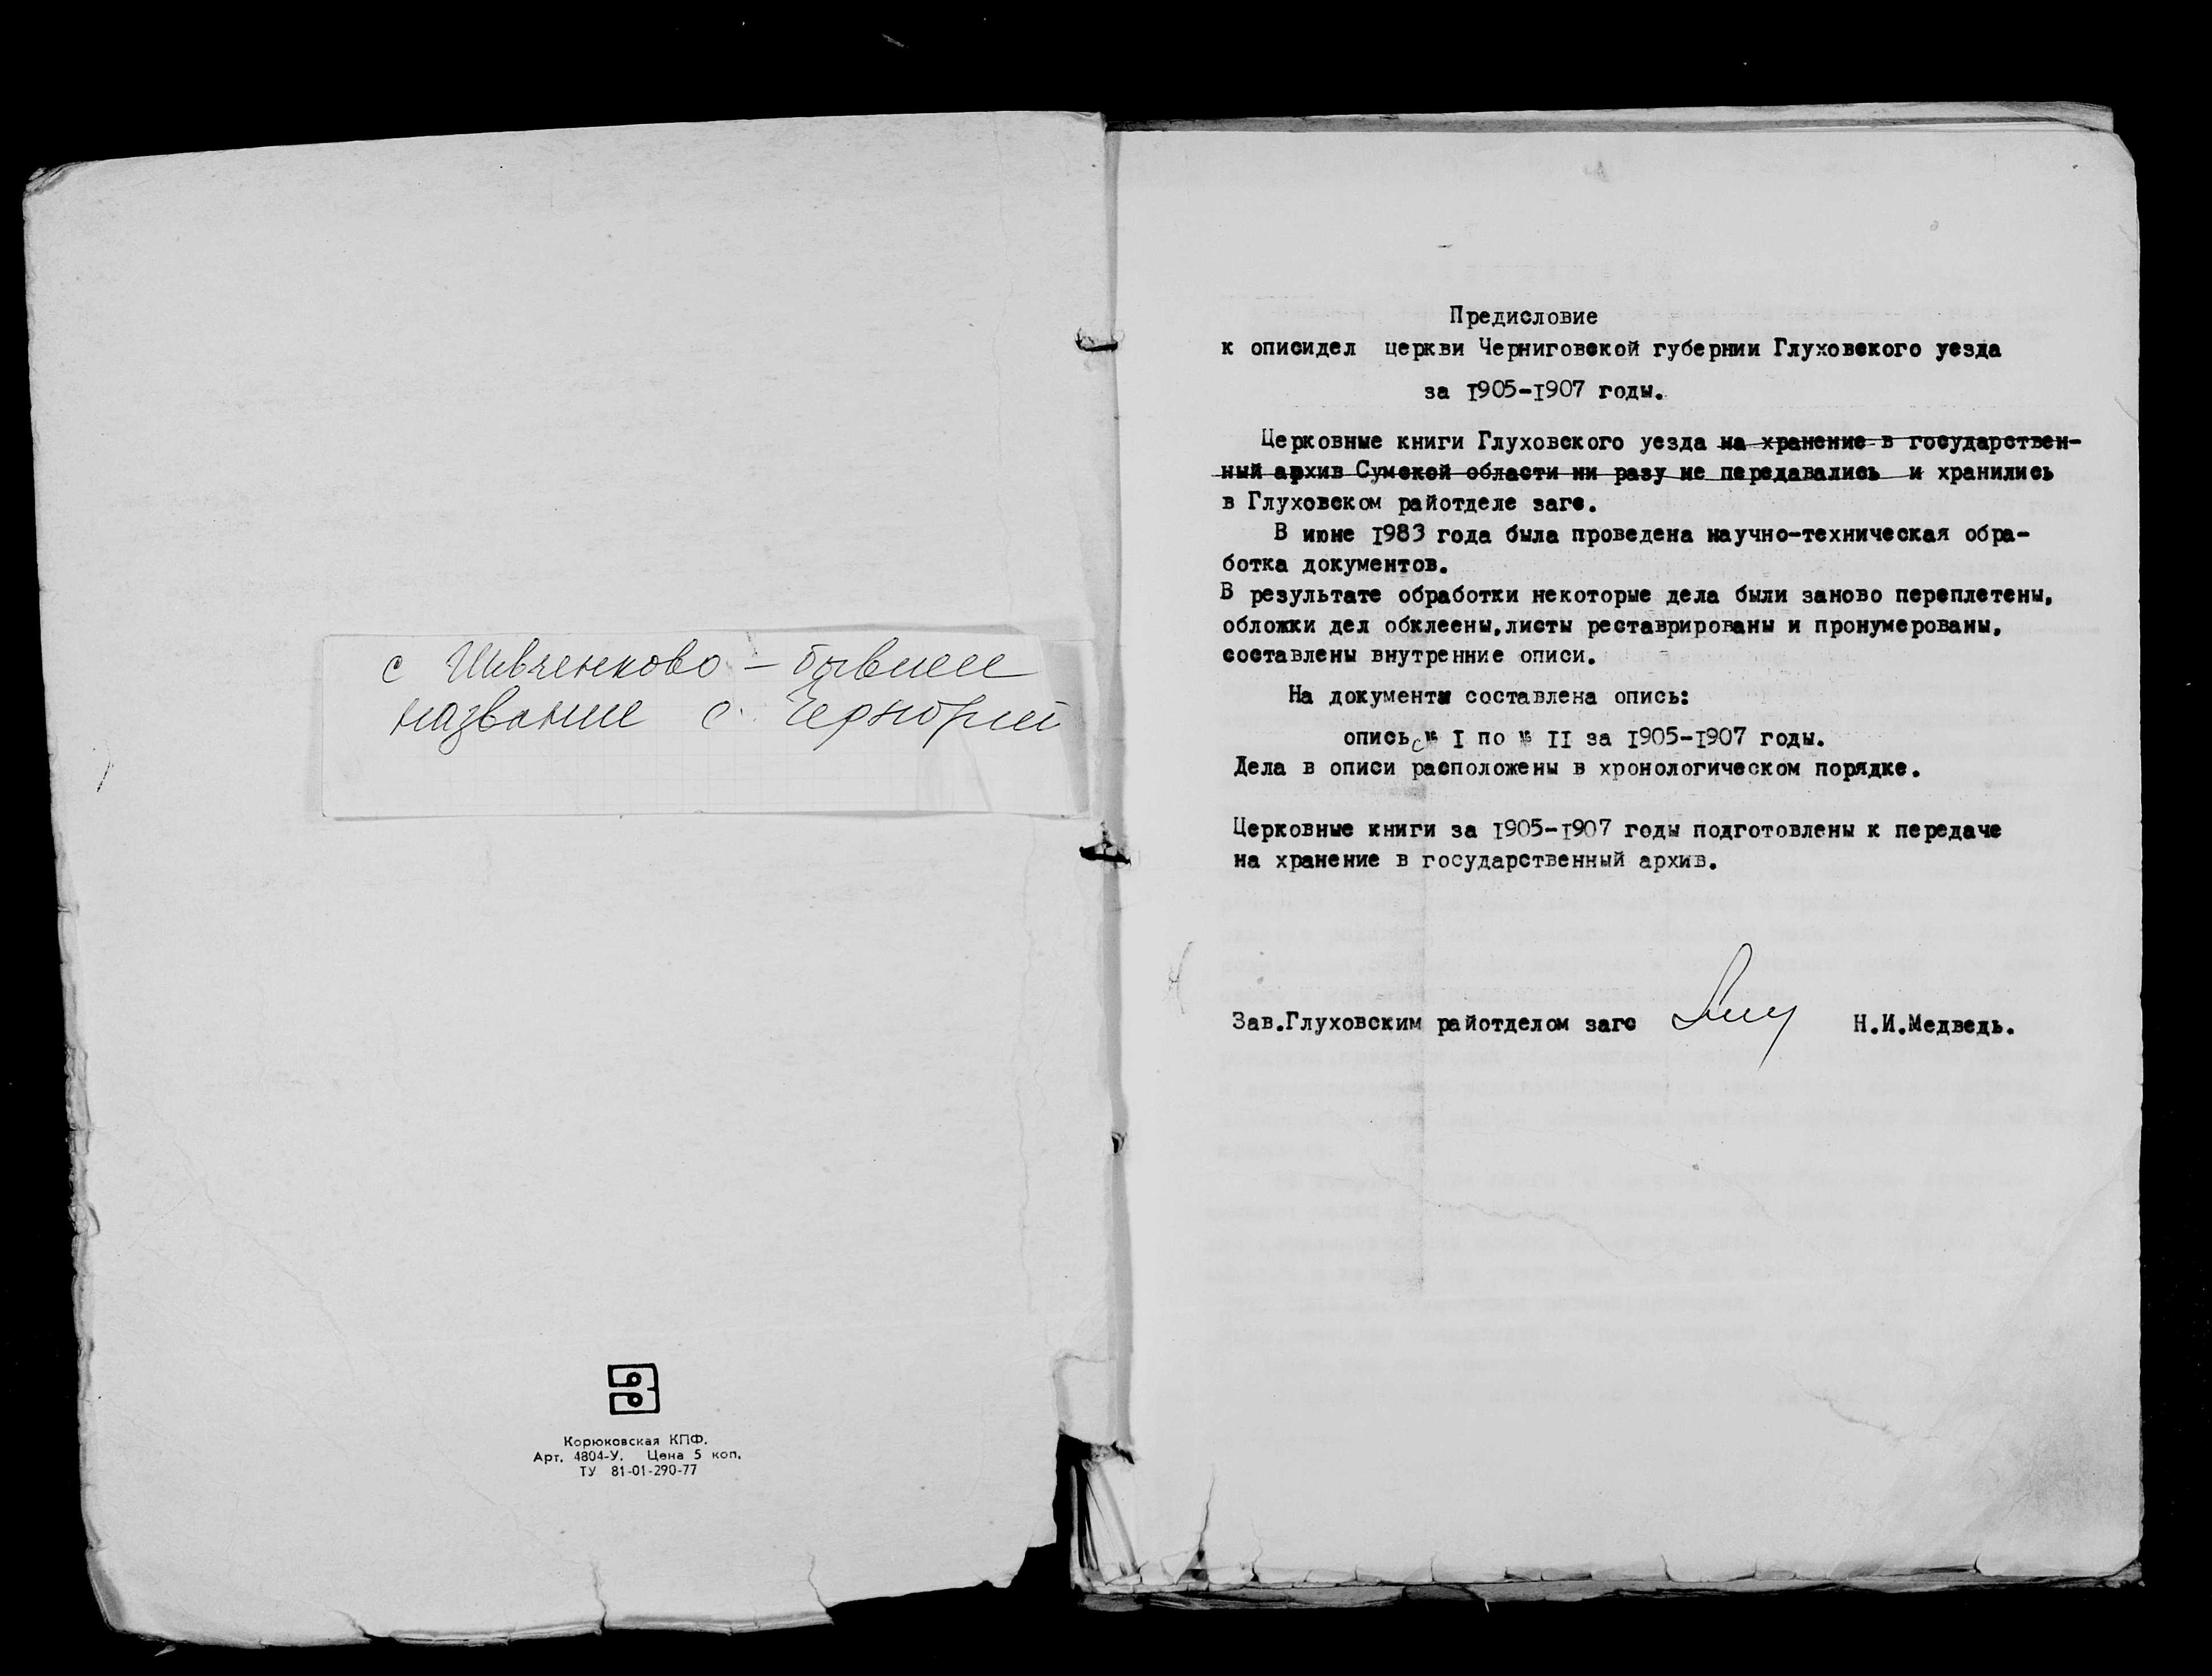 с Шевченково – бывшее
название с.
Корюковская КПФ.
Арт. 4804-У. Цена 5 коп.
ТУ 81-01-290-77
Предисловие
к описидел церкви Черниговской губернии Глуховского уезда
за I905-I907 годы.
Церковные книги Глуховского уезда на хранение в государствен-
ный архив Сумской области ни разу не передавались и хранились
в Глуховском райотделе загс.
В июне I983 года была проведена научно-техническая обра-
ботка документов.
В результате обработки некоторые дела были заново переплетены,
обложки дел обклеены,листы реставрированы и пронумерованы,
составлены внутренние описи.
На документы составлена опись:
опись с № I по № II за I905-I907 годы.
Дела в описи расположены в хронологическом порядке.
Церковные книги за I905-I907 годы подготовлены к передаче
на хранение в государственный архив.
Зав.Глуховским райотделом загс Н.И.Медведь.